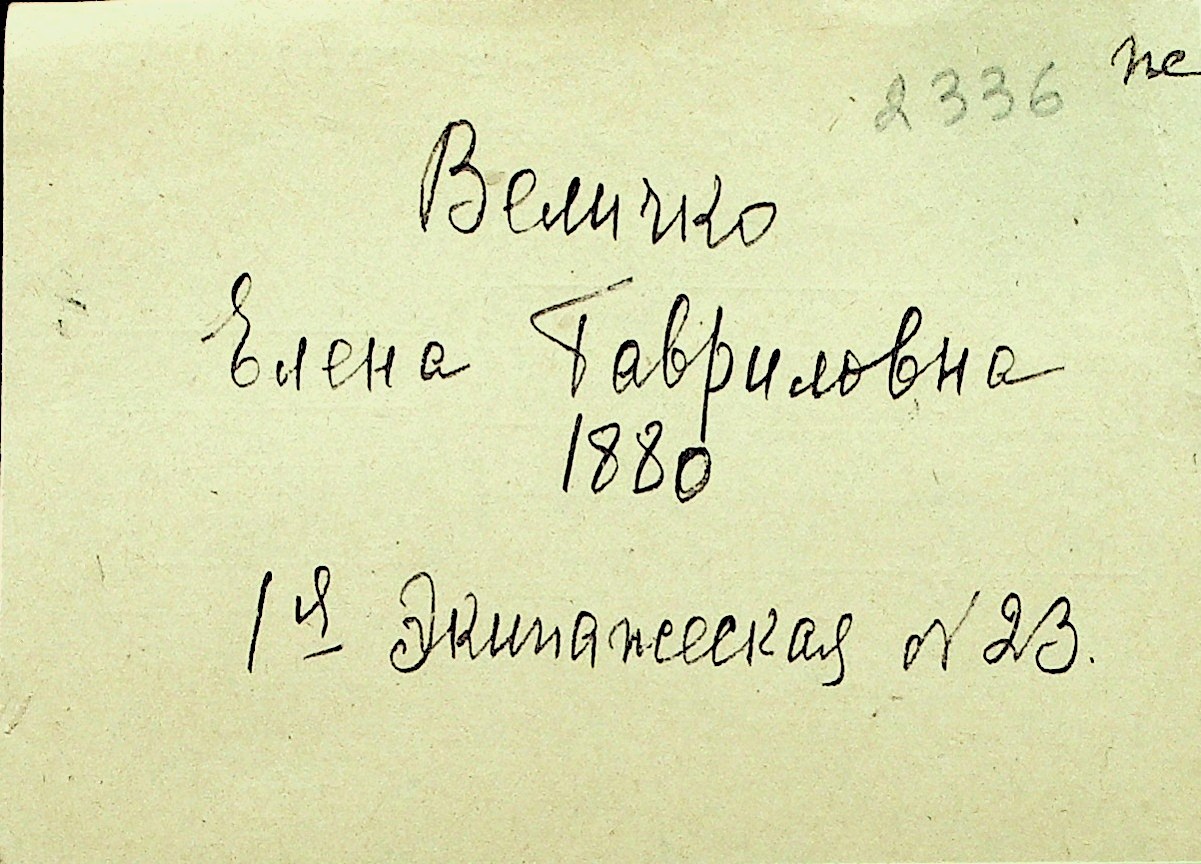 2336 же
Величко
Елена Гавриловна
1880
1я Экипажеская N 23.